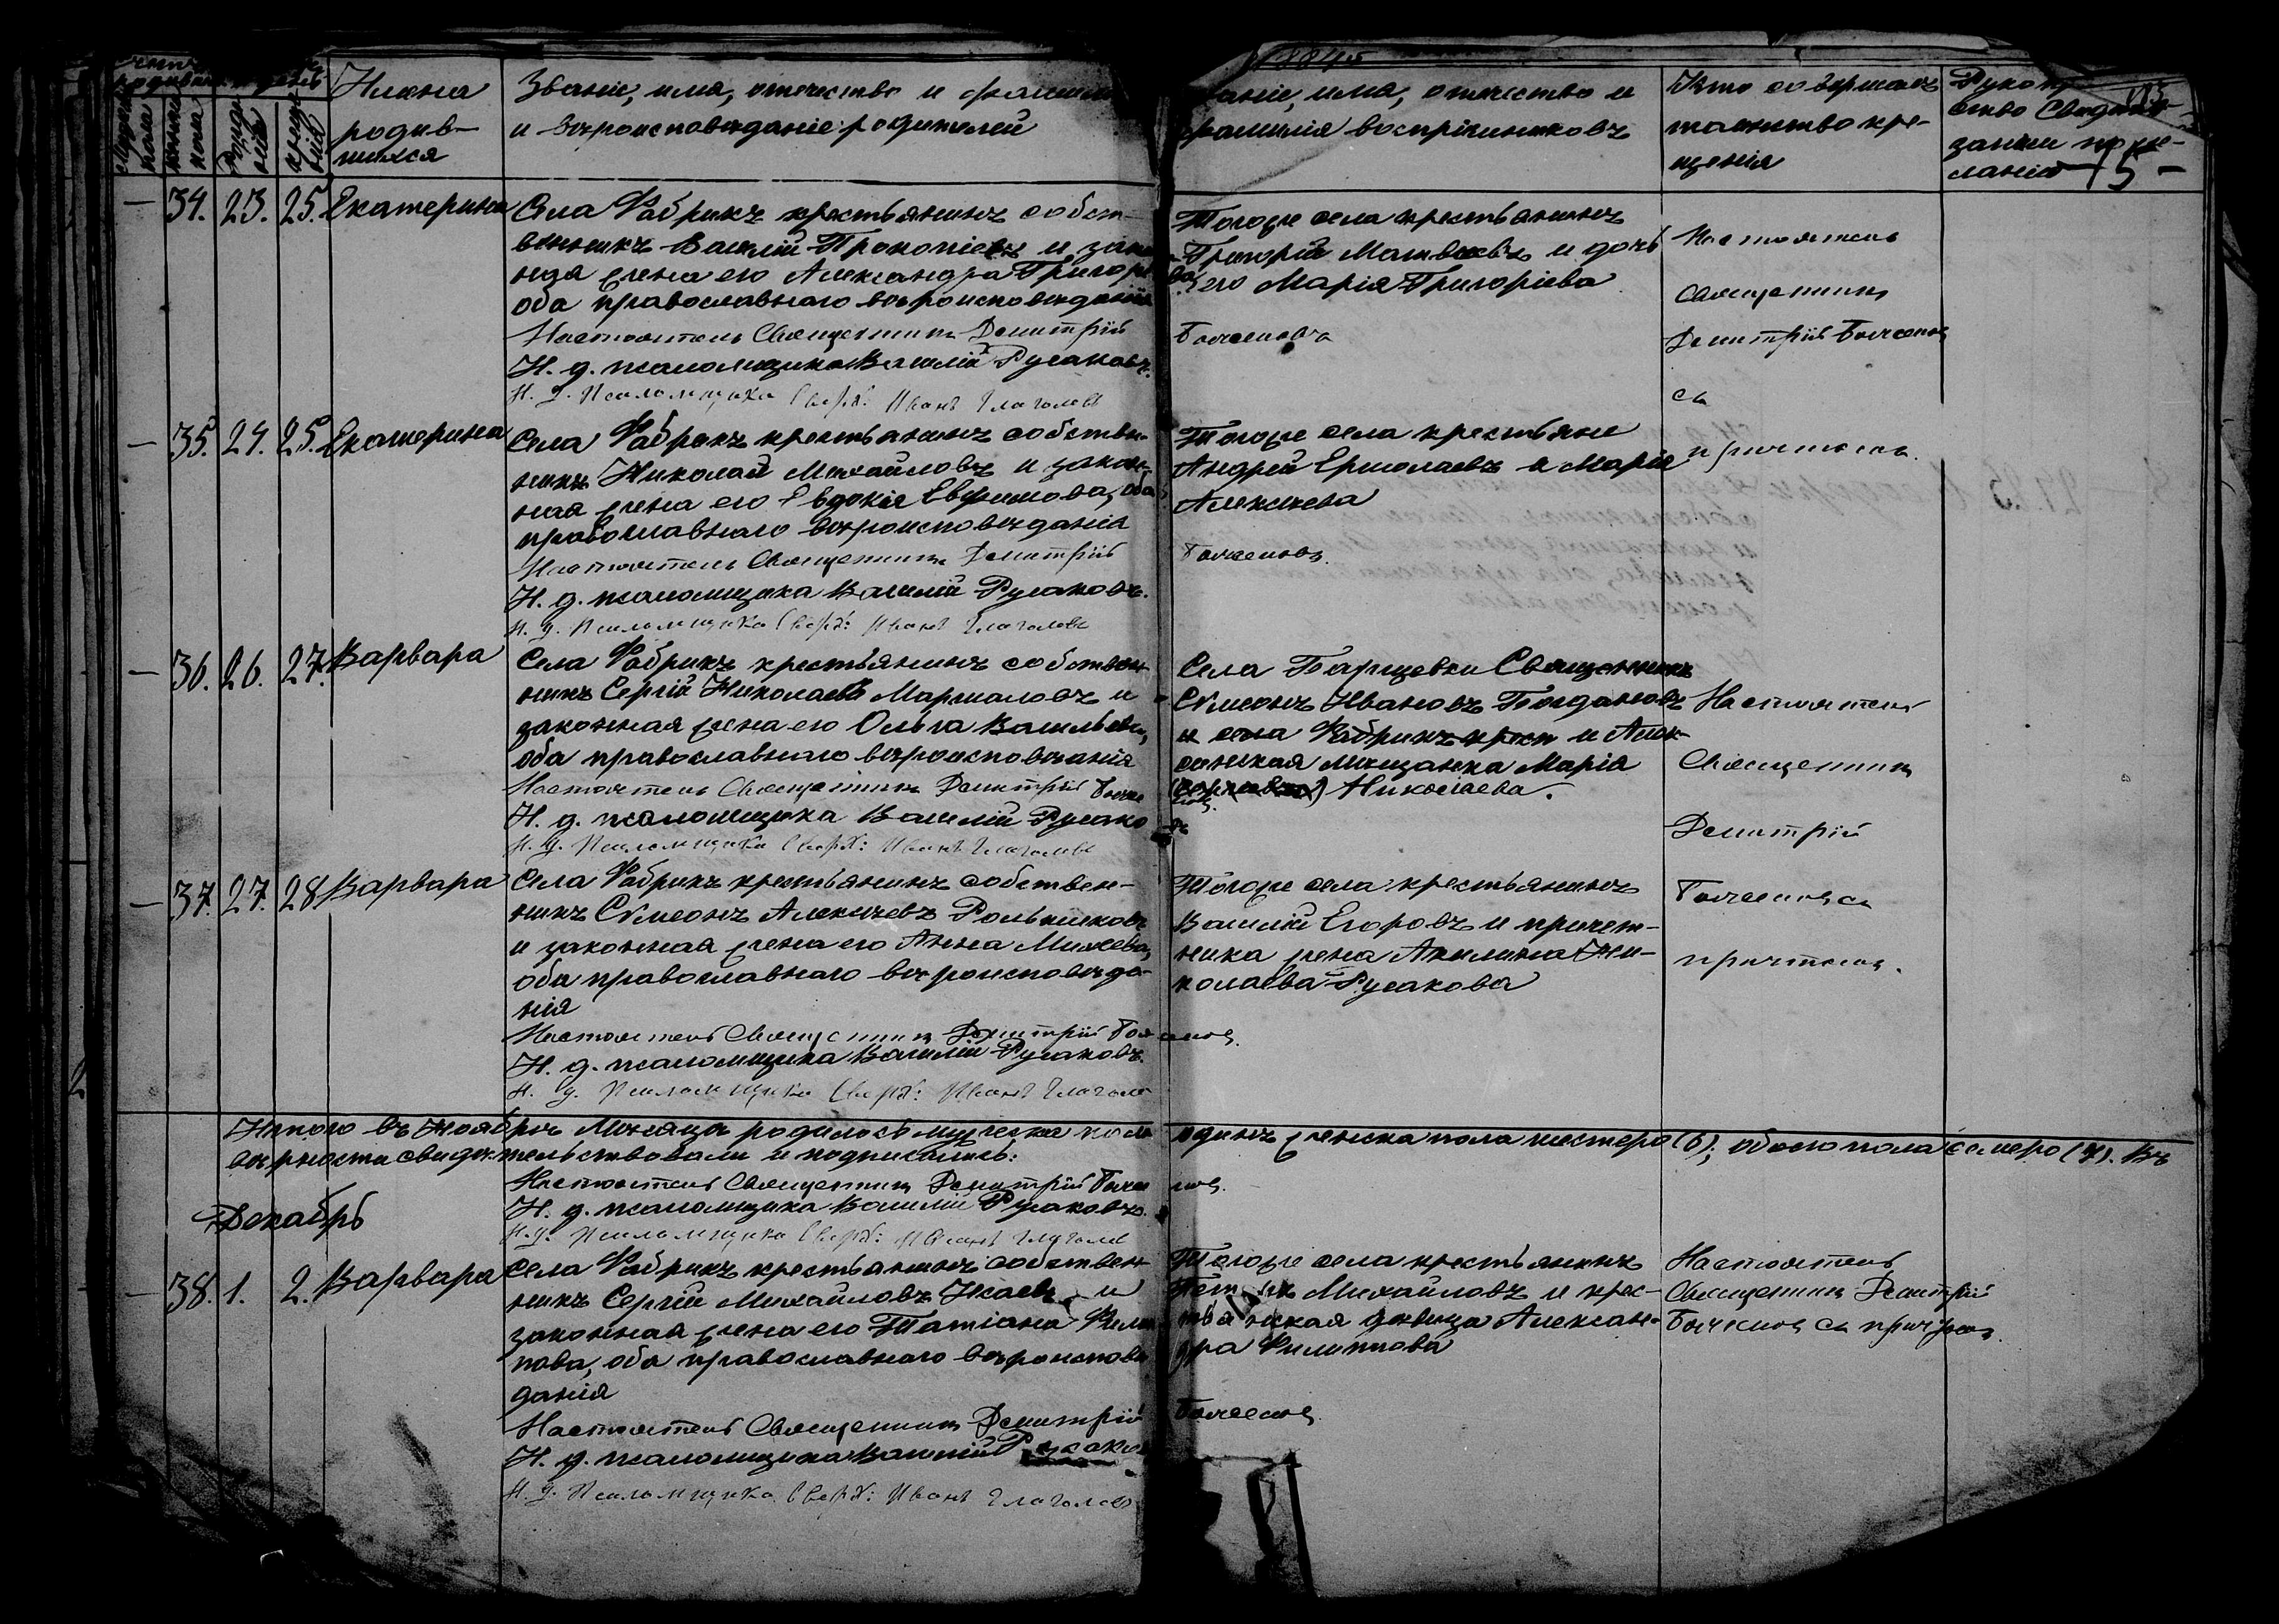 Имена
родив-
шихся
Званіе, имя, отчество и
и вѣроисповѣданіе родителей
имя, отчество и
фамилія воспріемниковъ
Кто совершалъ
таинство кре-
щенія
ланію
15
Мужеска пола
женска пола
рожденія
крещенія
— 34. 23. 25. Екатерина
Села Фабрикъ крестьянинъ собст-
венникъ Василій Прокопіевъ и закон
ная жена его Александра Григорье
ва, оба православнаго вѣроисповѣданія
Настоятель Священникъ Димитрій
И. д. псаломщика Василій Русаковъ.
И. д. Псаломщика Сверх: Иванъ Глаголевъ
Тогоже села крестьянинъ
Григорій Матвѣевъ и дочь
его Марія Григоріева
Настоятель
Священникъ
Димитрій
съ
причтомъ.
— 35. 24. 25. Екатерина
Села Фабрикъ крестьянинъ собствен-
никъ Николай Михайловъ и закон-
ная жена его Евдокія Евфимова, оба
православнаго вѣроисповѣданія
Настоятель Священникъ Димитрій
И. д. псаломщика Василій Русаковъ.
И. д. Псаломщика Сверх: Иванъ Глаголевъ
Тогоже села крестьяне
Андрей Ермолаевъ и Марія
Алексѣева
— 36. 26. 27. Варвара
Села Фабрикъ крестьянинъ собствен-
никъ Сергій Николаевъ Маршаловъ и
законная жена его Ольга Васильева,
оба православнаго вѣроисповѣданія
Настоятель Священникъ Димитрій
И. д. псаломщика Василій Русаковъ
И. д. Псаломщика Сверх: Иванъ Глаголевъ
Села Священникъ
Сѵмеонъ Ивановъ Богдановъ
и села Фабрикъ крест и Алек-
мѣщанка Марія
Николаева.
Настоятель
Священникъ
Димитрій
съ
причтомъ.
— 37. 27. 28 Варвара
Села Фабрикъ крестьянинъ собствен-
никъ Сѵмеонъ Алексѣевъ
и законная жена его Анна Михеева,
оба православнаго вѣроисповѣда-
нія
Настоятель Священникъ Димитрій
И. д. псаломщика Василій Русаковъ.
И. д. Псаломщика Сверх: Иванъ Глаголевъ
Тогоже села крестьянинъ
Василій Егоровъ и причет-
ника жена Акилина Ни-
колаева Русакова
Итого въ Ноябрѣ Мѣсяцѣ родилось мужеска пола одинъ женска пола шестеро (6); обоего пола семеро (7). Въ
вѣрности свидѣтельствовали и подписались:
Настоятель Священникъ Димитрій
И. д. псаломщика Василій Русаковъ.
И. д. Псаломщика Сверх: Иванъ Глаголевъ
Декабрь
— 38. 1. 2. Варвара
Села Фабрикъ крестьянинъ собствен
никъ Сергій Михайловъ и
законная жена его Татіана Фили
пова, оба православнаго вѣроисповѣ
данія
Настоятель Священникъ Димитрій
И. д. псаломщика Василій Русаковъ
И. д. Псаломщика Сверх: Иванъ Глаголевъ
Тогоже села крестьянинъ
Михайловъ и крес-
тьянская дѣвица Алексан-
дра Филиппова
Настоятель
Священникъ Димитрій
съ причтомъ.